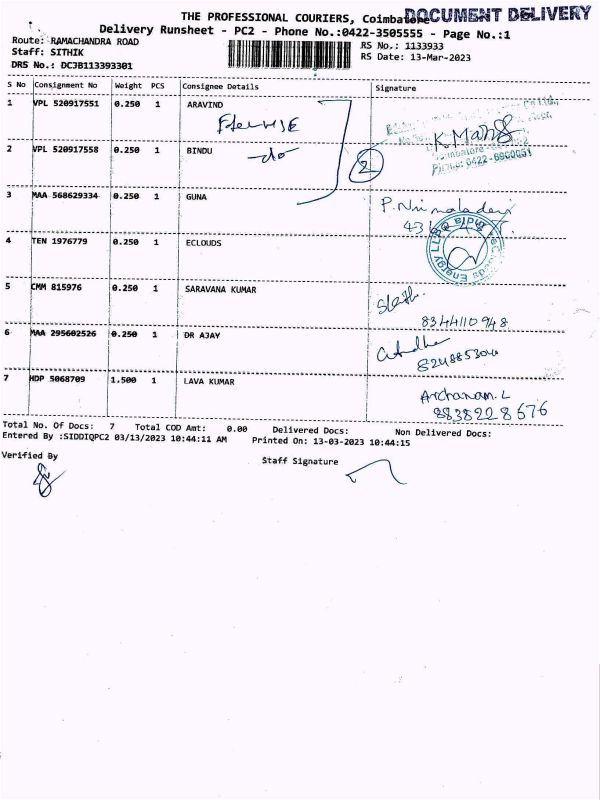 THE PROFESSIONAL COURIERS, Coimbatore
DOCUMENT DELIVERY
Delivery Runsheet - PC2 - Phone No.:0422-3505555 - Page No.:1
Route: RAMACHANDRA ROAD
Staff: SITHIK
DRS No.: DCJB113393301
RS No.: 1133933
RS Date: 13-Mar-2023
S No Consignment No Weight PCS Consignee Details Signature
1 VPL 520917551 0.250 1 ARAVIND
2 VPL 520917558 0.250 1 BINDU
-do-
2
3 MAA 568629334 0.250 1 GUNA
4 TEN 1976779 0.250 1 ECLOUDS
5 CMM 815976 0.250 1 SARAVANA KUMAR
8344110948
6 MAA 295602526 0.250 1 DR AJAY
7 HDP 5068709 1.500 1 LAVA KUMAR
Archanam.L
8838228676
Total No. Of Docs: 7 Total COD Amt: 0.00 Delivered Docs: Non Delivered Docs:
Entered By :SIDDIQPC2 03/13/2023 10:44:11 AM Printed On: 13-03-2023 10:44:15
Verified By
Staff Signature